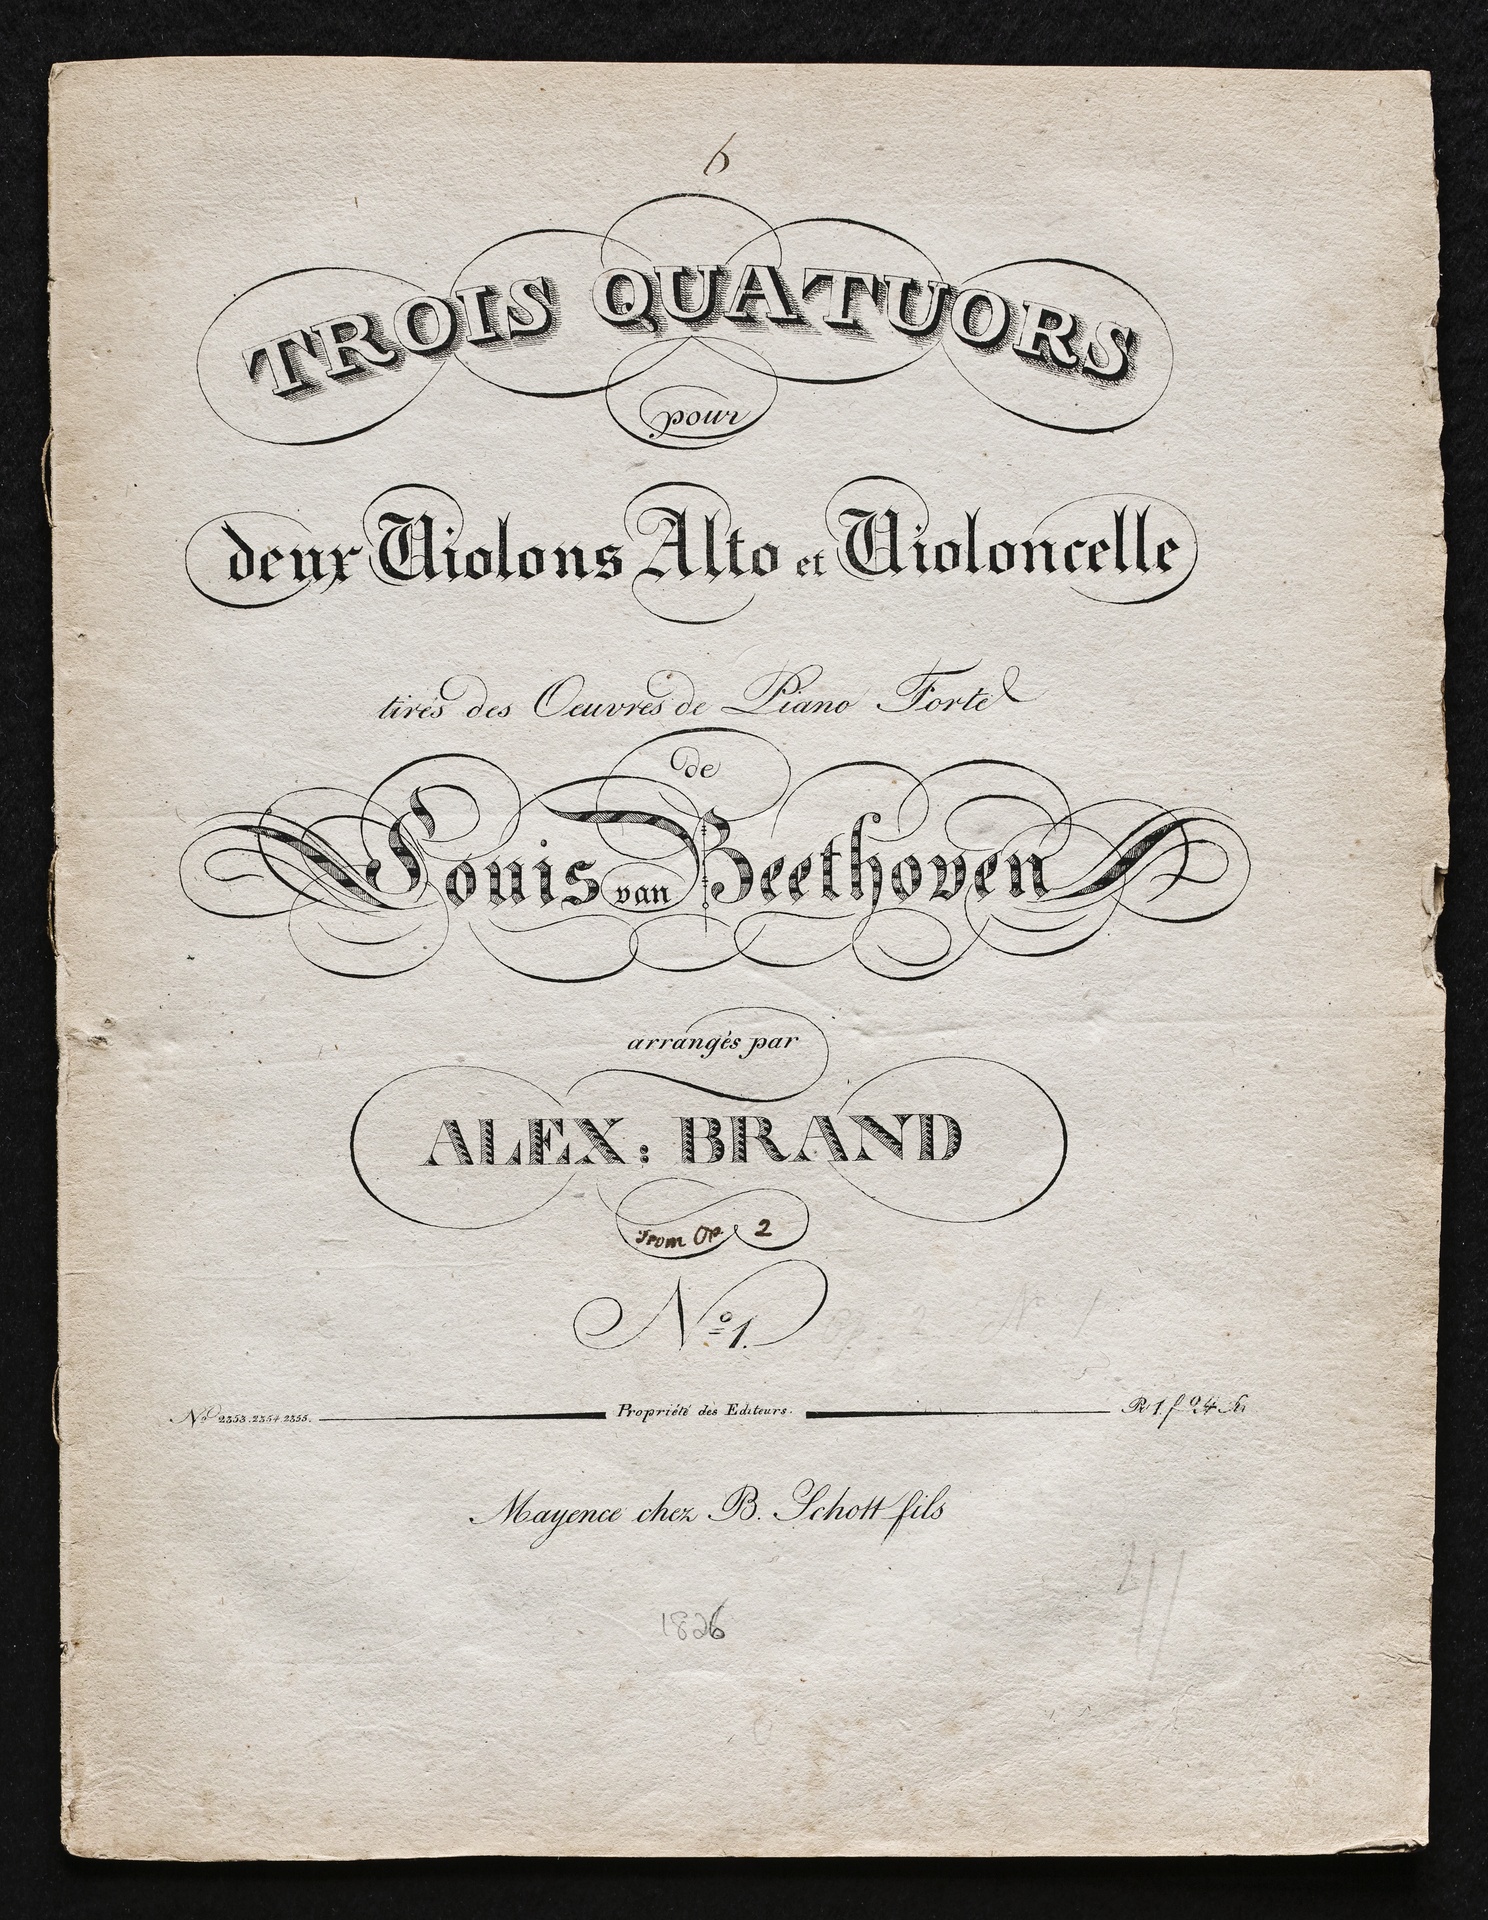 6
TROIS QUATUORS
pour
deux Violons Alto et Violoncelle
tirés des Oeuvres de Piano Forte
de
Louis van Beethoven
arrangés par
ALEX: BRAND
From Op. 2
Nº 1.
Nº 2353.2354.2355. Propriété des Editeurs. Pr 1.f 24 Kr
Mayence chez B. Schott fils
1826